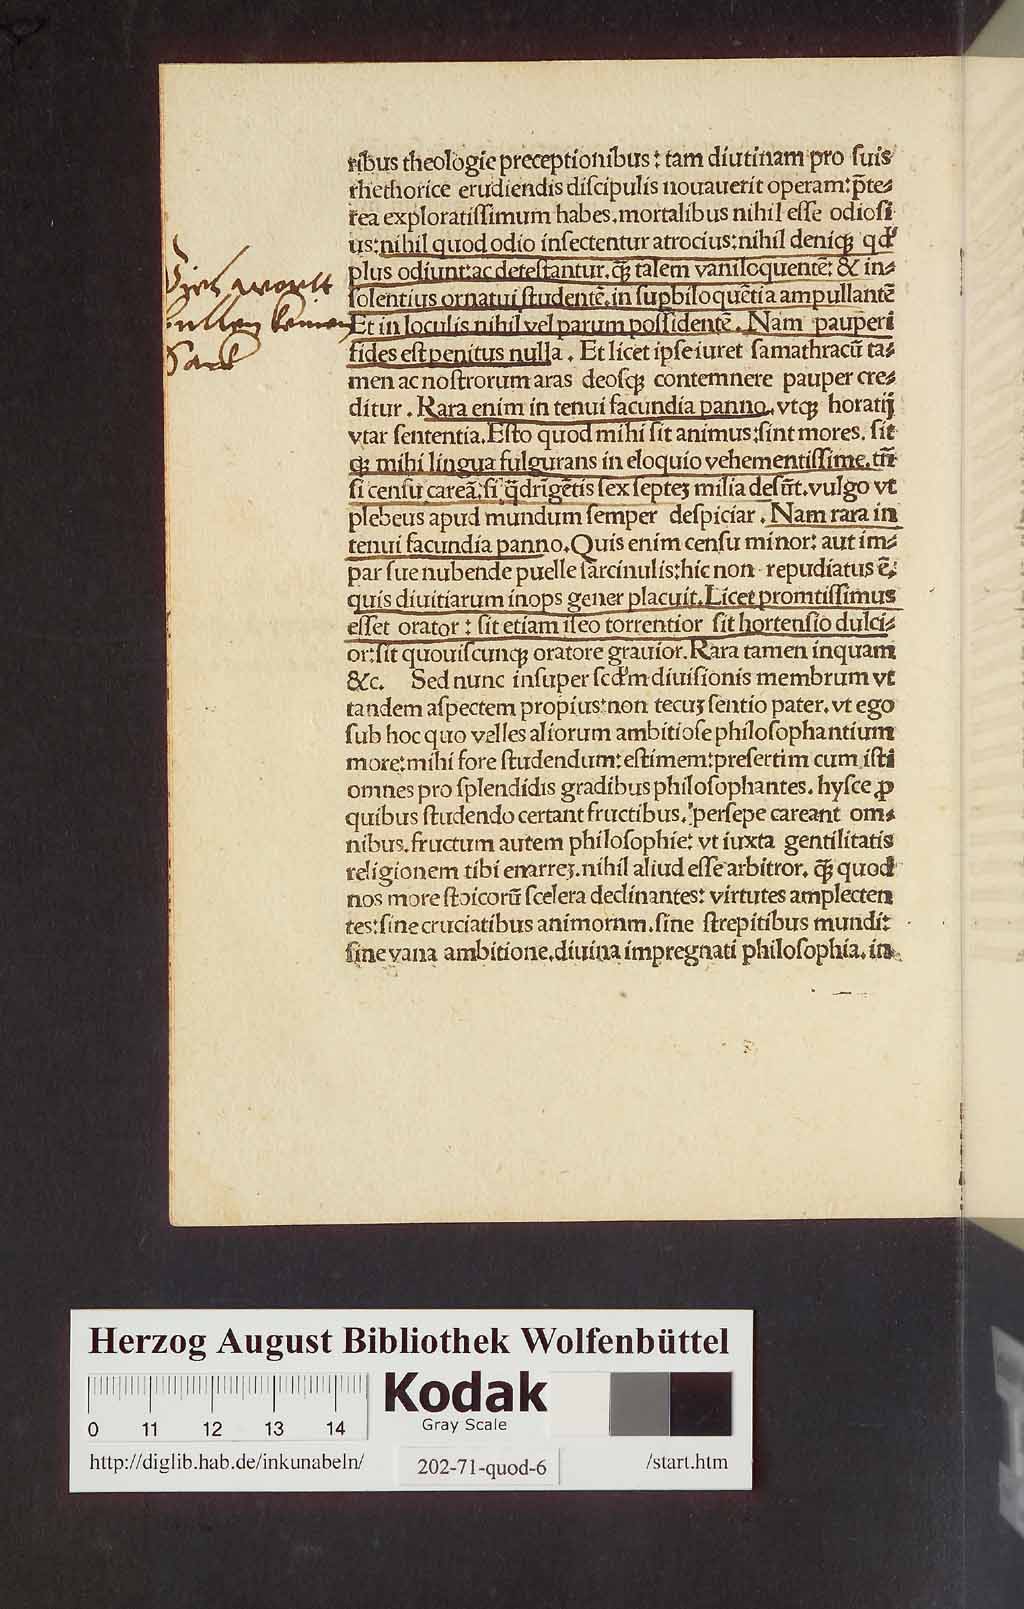 ribus theologie preceptionibus: tam diutinam pro ſuis
rhethorice erudiendis diſcipulis nouauerit operam: p̄te⸗
rea exploratiſſimum habes. mortalibus nihil eſſe odioſi
us: nihil quod odio inſectentur atrocius: nihil deniqꝫ qđ
plus odiunt: ac deteſtantur. qꝫ̄ talem vaniloquentē: & in⸗
ſolentius ornatui ſtudentē. in ſupbiloquētia ampullantē
Et in loculis nihil vel parum poſſidentē. Nam pauperi
fides eſt penitus nulla. Et licet ipſe iuret ſamathracū ta⸗
men ac noſtrorum aras deoſqꝫ contemnere pauper cre⸗
ditur. Rara enim in tenui facundia panno. vtqꝫ horatij
vtar ſententia. Eſto quod mihi ſit animus: ſint mores. ſit
qꝫ mihi lingua fulgurans in eloquio vehementiſſime. tn̄
ſi cenſu careā: ſi q̄dringētis ſex ſepteꝫ milia deſūt. vulgo vt
plebeus apud mundum ſemper deſpiciar. Nam rara in
tenui facundia panno. Quis enim cenſu minor: aut im⸗
par ſue nubende puelle ſarcinulis: hic non repudiatus ē:
quis diuitiarum inops gener placuit. Licet promtiſſimus
eſſet orator: ſit etiam iſeo torrentior ſit hortenſio dulci⸗
or: ſit quouiſcunqꝫ oratore grauior. Rara tamen inquam
&c. Sed nunc inſuper ſcđm diuiſionis membrum vt
tandem aſpectem propius: non tecuꝫ ſentio pater. vt ego
ſub hoc quo velles aliorum ambitioſe philoſophantium
more: mihi fore ſtudendum: eſtimem: preſertim cum iſti
omnes pro ſplendidis gradibus philoſophantes. hyſce ꝓ
quibus ſtudendo certant fructibus. perſepe careant om⸗
nibus. fructum autem philoſophie: vt iuxta gentilitatis
religionem tibi enarreꝫ. nihil aliud eſſe arbitror. qꝫ̄ quod
nos more ſtoicorū ſcelera declinantes: virtutes amplecten
tes: ſine cruciatibus animorum. ſine ſtrepitibus mundi:
ſine vana ambitione. diuina impregnati philoſophia. in
Sack
Herzog August Bibliothek Wolfenbüttel
0 11 12 13 14
Kodak
Gray Scale
http://diglib.hab.de/inkunabeln/
202-71-quod-6
/start.htm